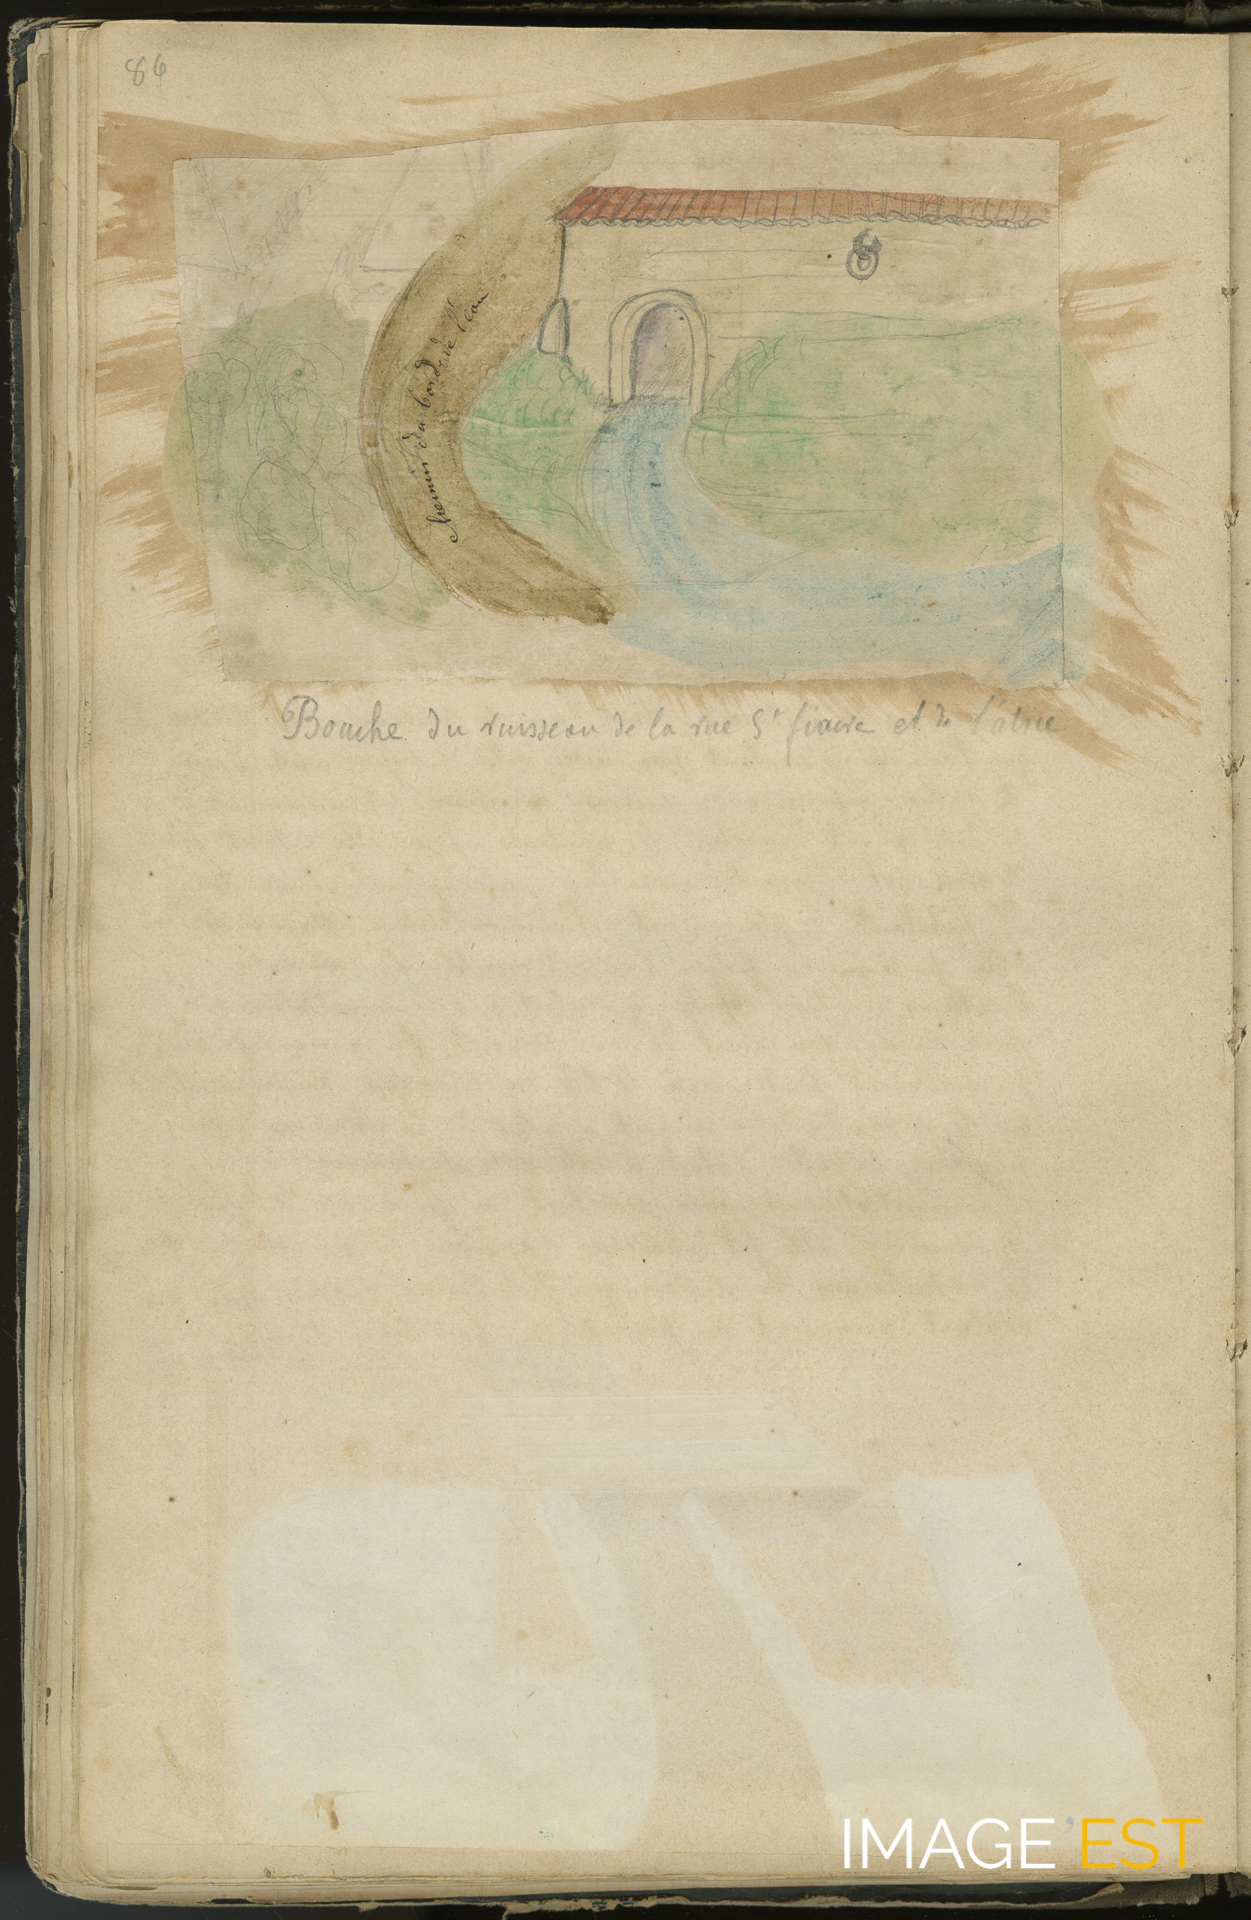 86
Chemin du bord de l'eau
Bouche du ruisseau de la rue St fiacre et de l'âtrie
IMAGE'EST